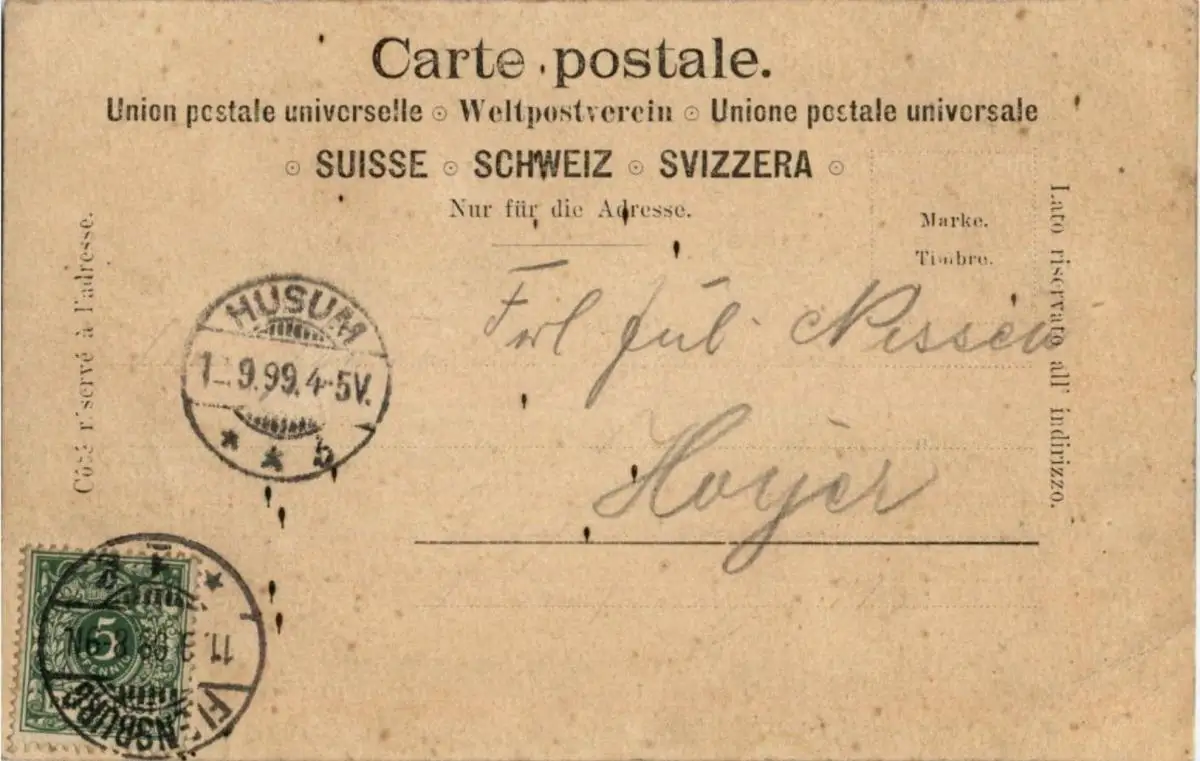 Carte postale.
Union postale universelle ⊙ Weltpostverein ⊙ Unione postale universale
⊙ SUISSE ⊙ SCHWEIZ ⊙ SVIZZERA ⊙
Nur für die Adresse.
Marke.
Timbre.
Côté réservé à l'adresse.
Lato riservato all' indirizzo.
HUSUM
1 9.99. 4-5V.
* * b
Frl Jül. Nissen
Hoyer
5
PFENNIG
FLENSBURG
11. 8-9N.
* 1